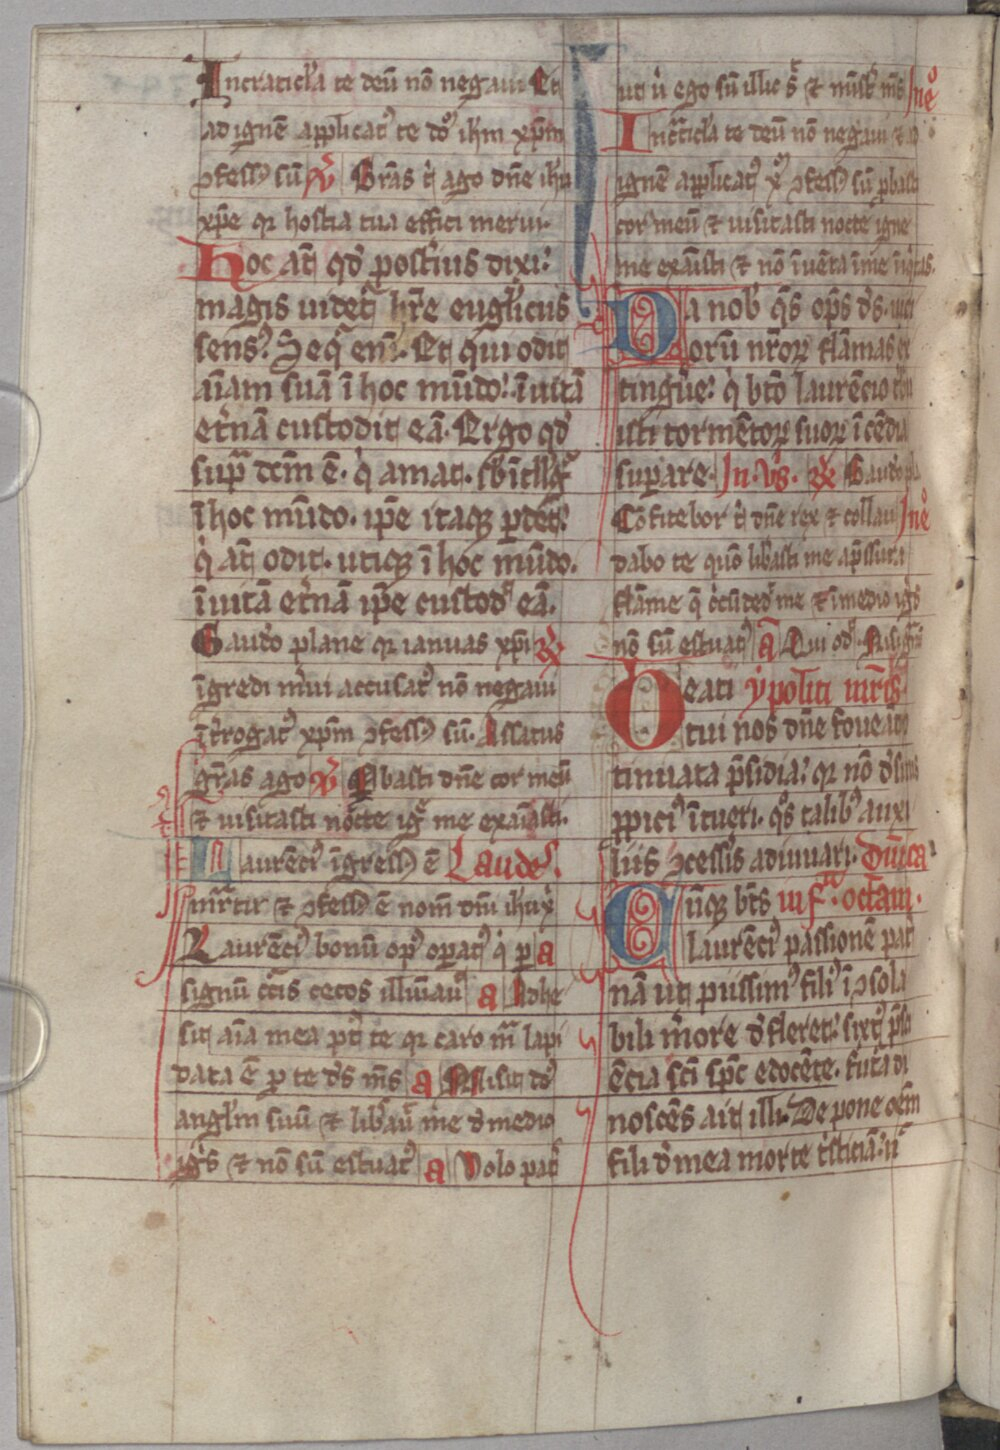 In craticl̄a te deū nō negaui Et
ad ignē applicat᷒ te dō ihm̄ xp̄m
ꝯfess᷒ sū ℣ Gr̄as t̄ ago dn̄e ihu
xp̄e qr hostia tua effici merui.
Hoc at̄ qd̓ posterius dixi:
magis uidet̄ hr̄e eugl̓icus
sens᷒. Seqr̄ eni. Et qui odit
aīam suā ī hoc mūdo: ī uitā
et̓nā custodit eā. Ergo qd̓
sup̄ dcm̄ ē. q̓ amat.
ī hoc mūdo. ip̄e itaqꝫ ꝑdet:
q̓ at̄ odit. utiqꝫ ī hoc mūdo.
ī uitā et̓nā ip̄e custod̓ eā.
Gaudeo plane qr ianuas xp̄i ℟
īgredi m̓ui accusat᷒ nō negaui
īt̓rogat᷒ xp̄m ꝯfess᷒ sū. Assatus
gr̄as ago ℣ Ꝓbasti dn̄e cor meū
⁊ uisitasti nocte igē me exaīasti.
Laurēci᷒ īgress᷒ ē Laudes.
mr̄tir ⁊ ꝯfess᷒ ē nom̄ dn̄i ihu x̄
Laurēci᷒ bonū op᷒ opat᷒ q̓ ꝑ a
signū cc̄is cecos illuīau̓ a Adhe
sit aīa mea pt̓ te qr caro m̄ lapi
data ē ꝓ te ds̄ ms̄ a Misit ds̄
angl̓m suū ⁊ lib̓au̓ me d̓ medio
ig̓s ⁊ nō sū estuat᷒ a Volo pat̓
ut u̓ ego sū illic s̄ ⁊ mīst̓ ms̄ In eō
In c̄ticl̄a te deū nō negaui ⁊ ad
ignē applicat᷒ x̄ ꝯfess᷒ sū ꝓbasti
cor meū ⁊ uisitasti nocte igne
me exaīasti ⁊ nō īuēta ī me īiq̓tas.
Da nob̓ qs̄ op̄s ds̄. uici
orū nr̄oꝝ flāmas ex
tingue: q̓ bt̄o laurēcio t̓bu
isti tormētoꝝ suoꝝ īcēdia
suꝑare. In. vs̄. ℟ Gaudeo pla
Cōfitebor t̄ dn̄e rex ⁊ collau In eō
dabo te quō lib̓asti me a p̄ssura
flāme q̄ c̓cūded̓ me ⁊ ī medio ig̓s
nō sū estuat᷒ a Qui od̓.
Beati ypoliti mr̄is
tui nos dn̄e foueat
tinuata p̄sidia: qr nō
ꝓpici᷒ ītueri. qo̓s talib᷒ auxi
liis ꝯcess̓is adiuuari. Dn̄ica
Cūqꝫ bt̄s īf̄ octam.
Laurēci᷒ passionē pati
nā ut piissim᷒ fili᷒ ī ꝯsola
bili m̓rore d̓fleret:
ēcia sc̄i sp̄c edocēte. futa di
noscēs ait illi. Depone oēm
fili d̓ mea morte t̓sticiā: n̄